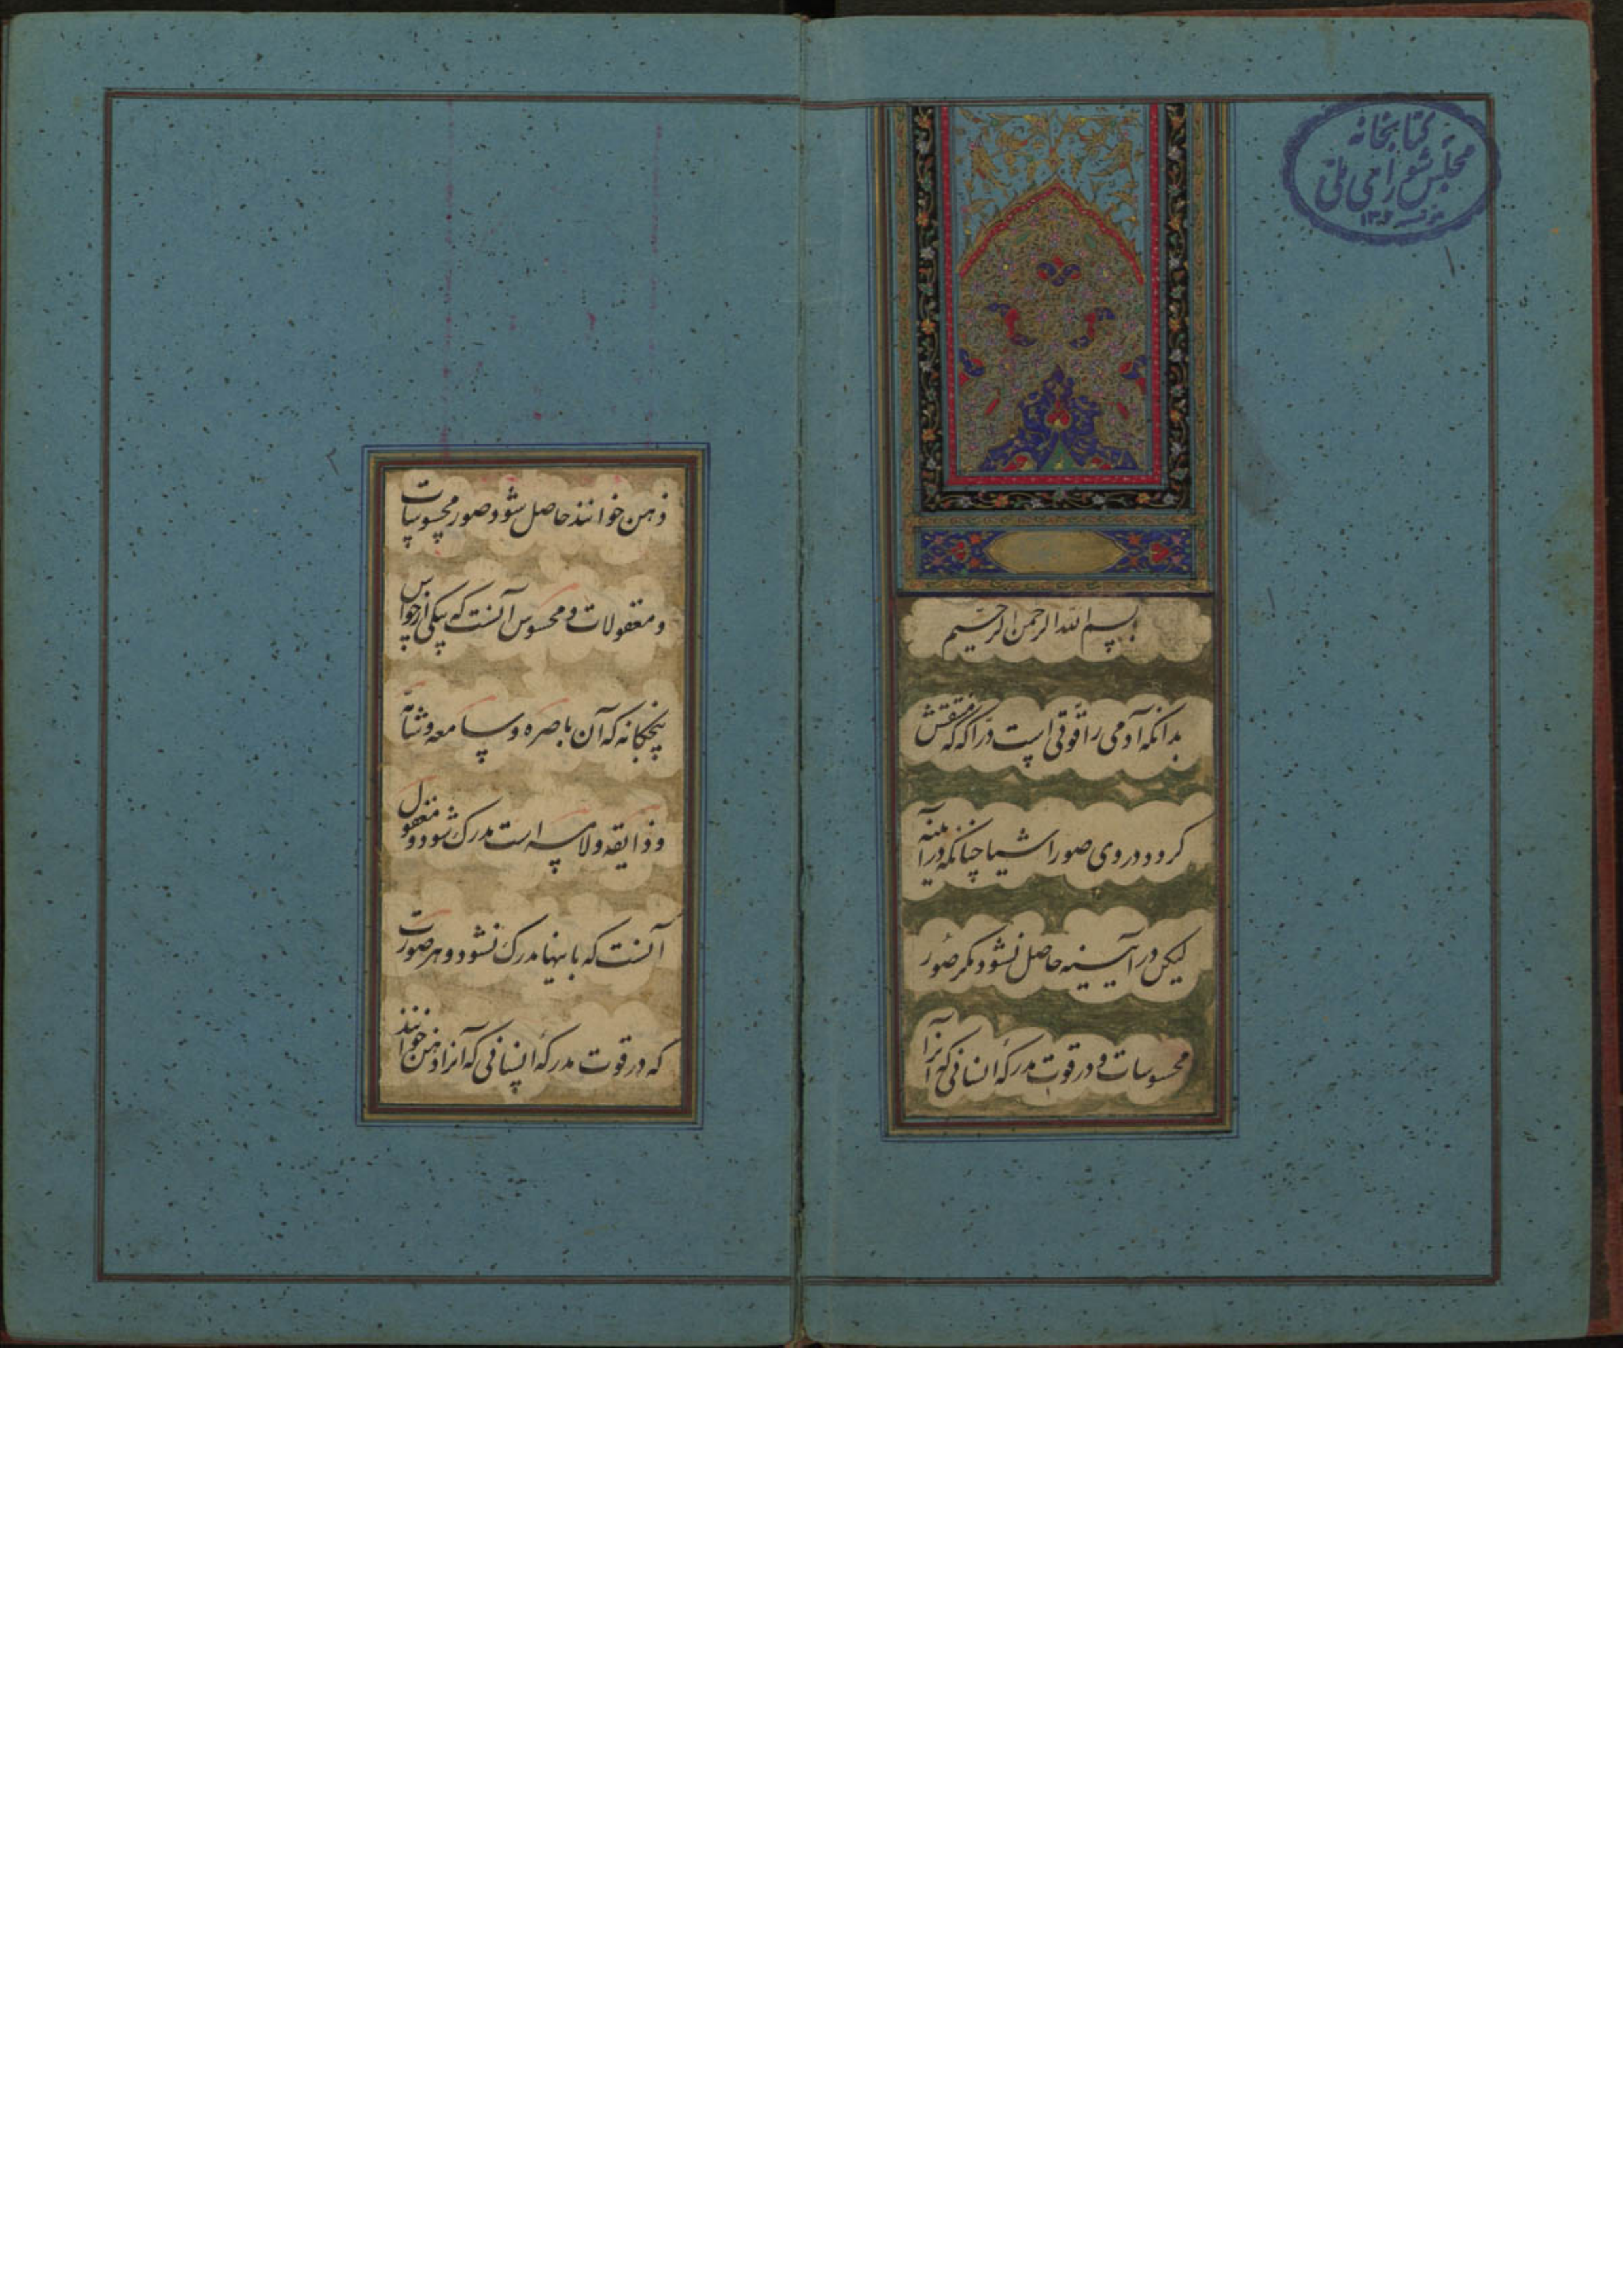 کتابخانه
مجلس شورای ملی
۱
بسم الله الرحمن الرحیم
بدانکه آدمی را قوتی است درّاکه که منتقش
کردد در وی صور اشیا چنانکه در آینه
لیکن در آیینه حاصل نشود مکر صور
محسوسات و در قوت مدرکهٔ انسانی که آنرا
۲
ذهن خوانند حاصل شود صور محسوسات
و معقولات و محسوس آنست که بیکی از حواس
پنجکانه که آن باصره و سامعه و شامّه
و ذایقه و لامسه است مدرک شود و معقول
آنست که باینها مدرک نشود و هر صورت
که در قوت مدرکهٔ انسانی که آنرا ذهن خوانند